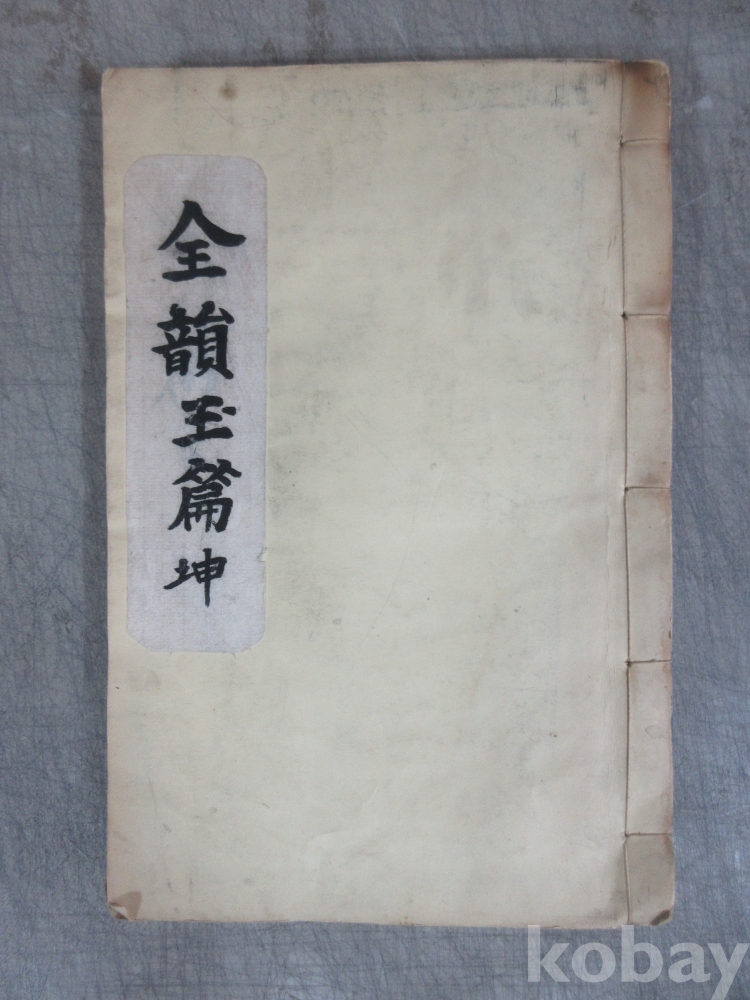 全韻玉篇 坤
kobay